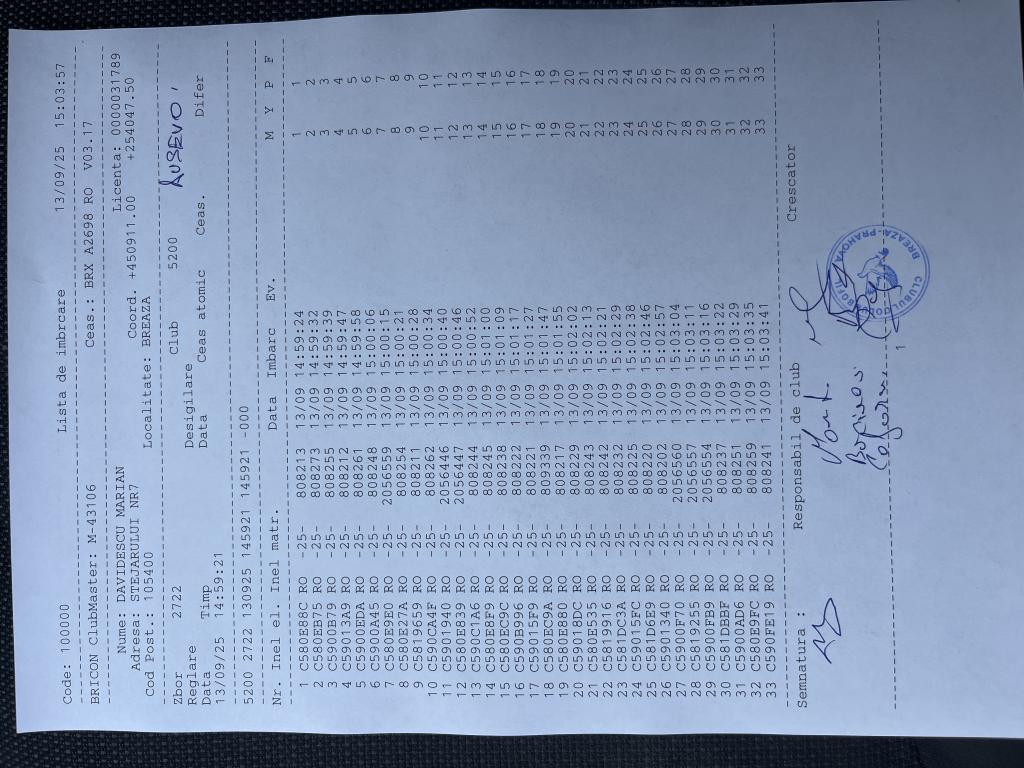 Code: 100000 Lista de imbrcare 13/09/25 15:03:57
BRICON ClubMaster: M-43106 Ceas.: BRX A2698 RO V03.17
Nume: DAVIDESCU MARIAN Licenta: 0000031789
Adresa: STEJARULUI NR7 Coord. +450911.00 +254047.50
Cod Post.: 105400 Localitate: BREAZA
Zbor 2722 Club 5200 AUSEVO,
Reglare Desigilare
Data Timp Data Ceas atomic Ceas. Difer
13/09/25 14:59:21
5200 2722 130925 145921 145921 -000
Nr. Inel el. Inel matr. Data Imbarc Ev. M Y P F
1 C580E88C RO -25- 808213 13/09 14:59:24 1 1
2 C580EB75 RO -25- 808273 13/09 14:59:32 2 2
3 C5900B79 RO -25- 808255 13/09 14:59:39 3 3
4 C59013A9 RO -25- 808212 13/09 14:59:47 4 4
5 C5900EDA RO -25- 808261 13/09 14:59:58 5 5
6 C5900A45 RO -25- 808248 13/09 15:00:06 6 6
7 C580E9E0 RO -25- 2056559 13/09 15:00:15 7 7
8 C580E27A RO -25- 808254 13/09 15:00:21 8 8
9 C5819659 RO -25- 808211 13/09 15:00:28 9 9
10 C590CA4F RO -25- 808262 13/09 15:00:34 10 10
11 C5901940 RO -25- 2056446 13/09 15:00:40 11 11
12 C580EB39 RO -25- 2056447 13/09 15:00:46 12 12
13 C590C1A6 RO -25- 808244 13/09 15:00:52 13 13
14 C580E8F9 RO -25- 808245 13/09 15:01:00 14 14
15 C580EC9C RO -25- 808238 13/09 15:01:09 15 15
16 C590B996 RO -25- 808222 13/09 15:01:17 16 16
17 C59015F9 RO -25- 808221 13/09 15:01:27 17 17
18 C580EC9A RO -25- 809339 13/09 15:01:47 18 18
19 C580E880 RO -25- 808217 13/09 15:01:55 19 19
20 C5901BDC RO -25- 808229 13/09 15:02:02 20 20
21 C580E535 RO -25- 808243 13/09 15:02:13 21 21
22 C5819916 RO -25- 808242 13/09 15:02:21 22 22
23 C581DC3A RO -25- 808232 13/09 15:02:29 23 23
24 C59015FC RO -25- 808225 13/09 15:02:38 24 24
25 C581D6E9 RO -25- 808220 13/09 15:02:46 25 25
26 C5901340 RO -25- 808202 13/09 15:02:57 26 26
27 C5900F70 RO -25- 2056560 13/09 15:03:04 27 27
28 C5819255 RO -25- 2056557 13/09 15:03:11 28 28
29 C5900FB9 RO -25- 2056554 13/09 15:03:16 29 29
30 C581DBBF RO -25- 808237 13/09 15:03:22 30 30
31 C5900AD6 RO -25- 808251 13/09 15:03:29 31 31
32 C580E9FC RO -25- 808259 13/09 15:03:35 32 32
33 C590FE19 RO -25- 808241 13/09 15:03:41 33 33
Semnatura : Responsabil de club Crescator
BREAZA-PRAHOVA
1